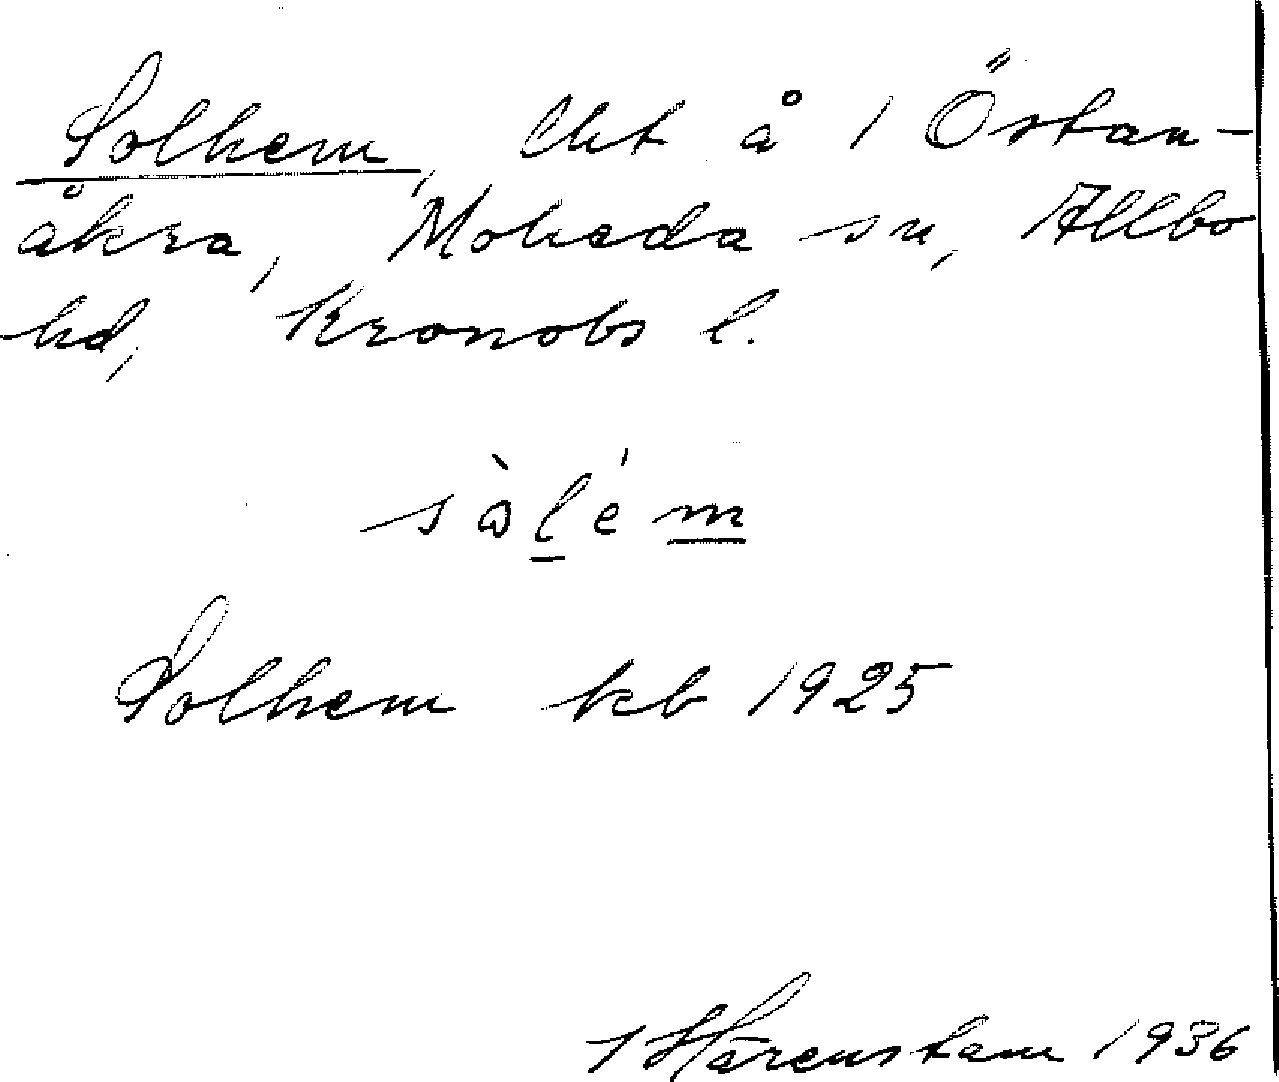 Solhem, lht å 1 Östan-
åkra, Moheda sn, Allbo
hd, Kronobs l.
sòlém
Solhem kb 1925
Härenstam 1936